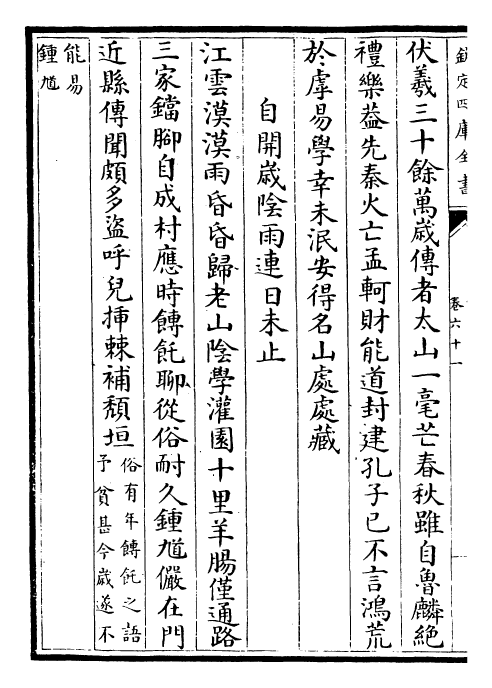 欽定四庫全書
卷六十一
伏羲三十餘萬歲傳者太山一毫芒春秋雖自魯麟絶
禮樂葢先秦火亡孟軻財能道封建孔子已不言鴻荒
於虖易學幸未泯安得名山處處藏
自開歲陰雨連日未止
江雲漠漠雨昏昏歸老山陰學灌園十里羊腸僅通路
三家鐺腳自成村應時餺飥聊從俗耐久鍾馗儼在門
近縣傳聞頗多盜呼兒插棘補頽垣俗有年餺飥之語
予貧甚今歲遂不
能易
鍾馗